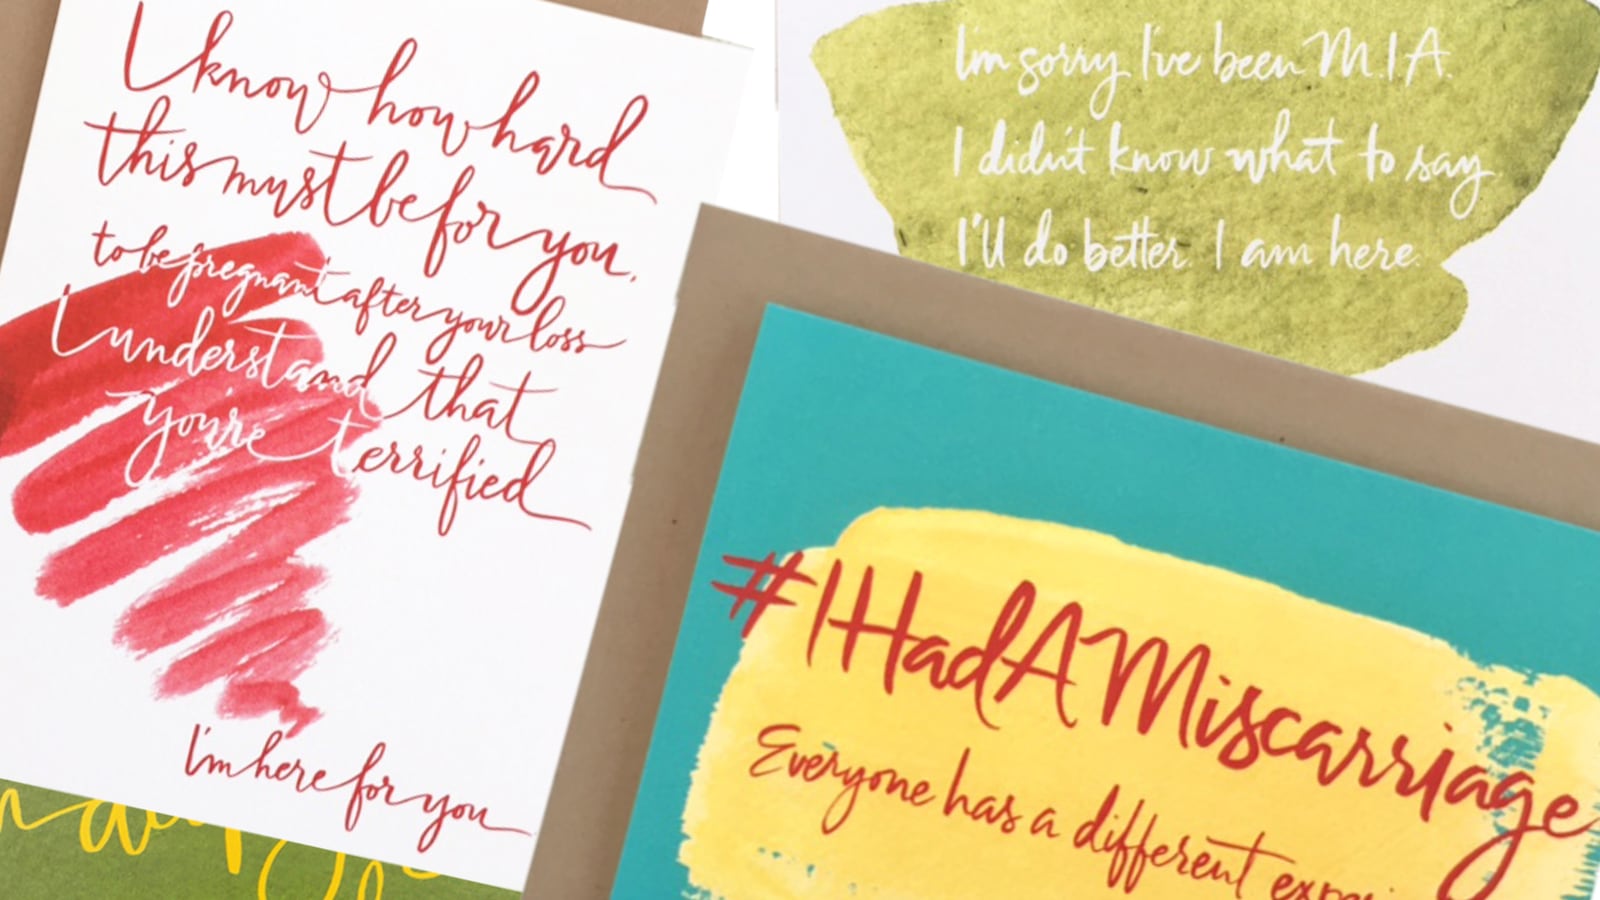 I know how hard
this must be for you,
to be pregnant after your loss
I understand that
you're terrified
I'm here for you
I'm sorry I've been M.I.A.
I didn't know what to say.
I'll do better. I am here.
#IHadAMiscarriage
Everyone has a different